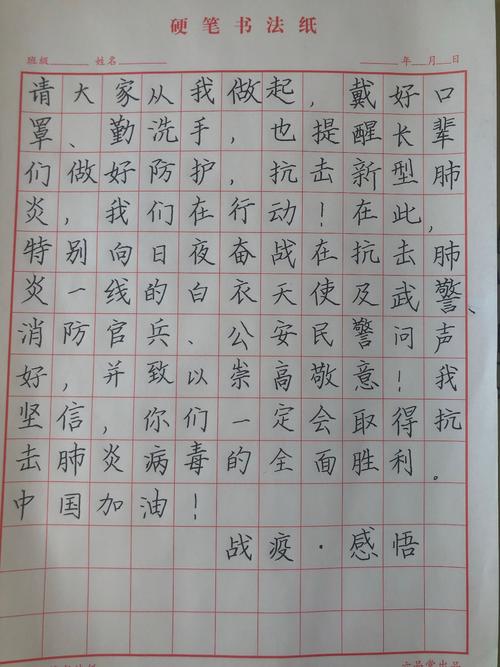 硬笔书法纸
班级 姓名 年 月 日
请大家从我做起,戴好口
罩、勤洗手,也提醒长辈
们做好防护,抗击新型肺
炎,我们在行动!在此,
特别向日夜奋战在抗击肺
炎一线的白衣天使及武警、
消防官兵、公安民警问声
好,并致以崇高敬意!我
坚信,你们一定会取得抗
击肺炎病毒的全面胜利。
中国加油!
战疫·感悟